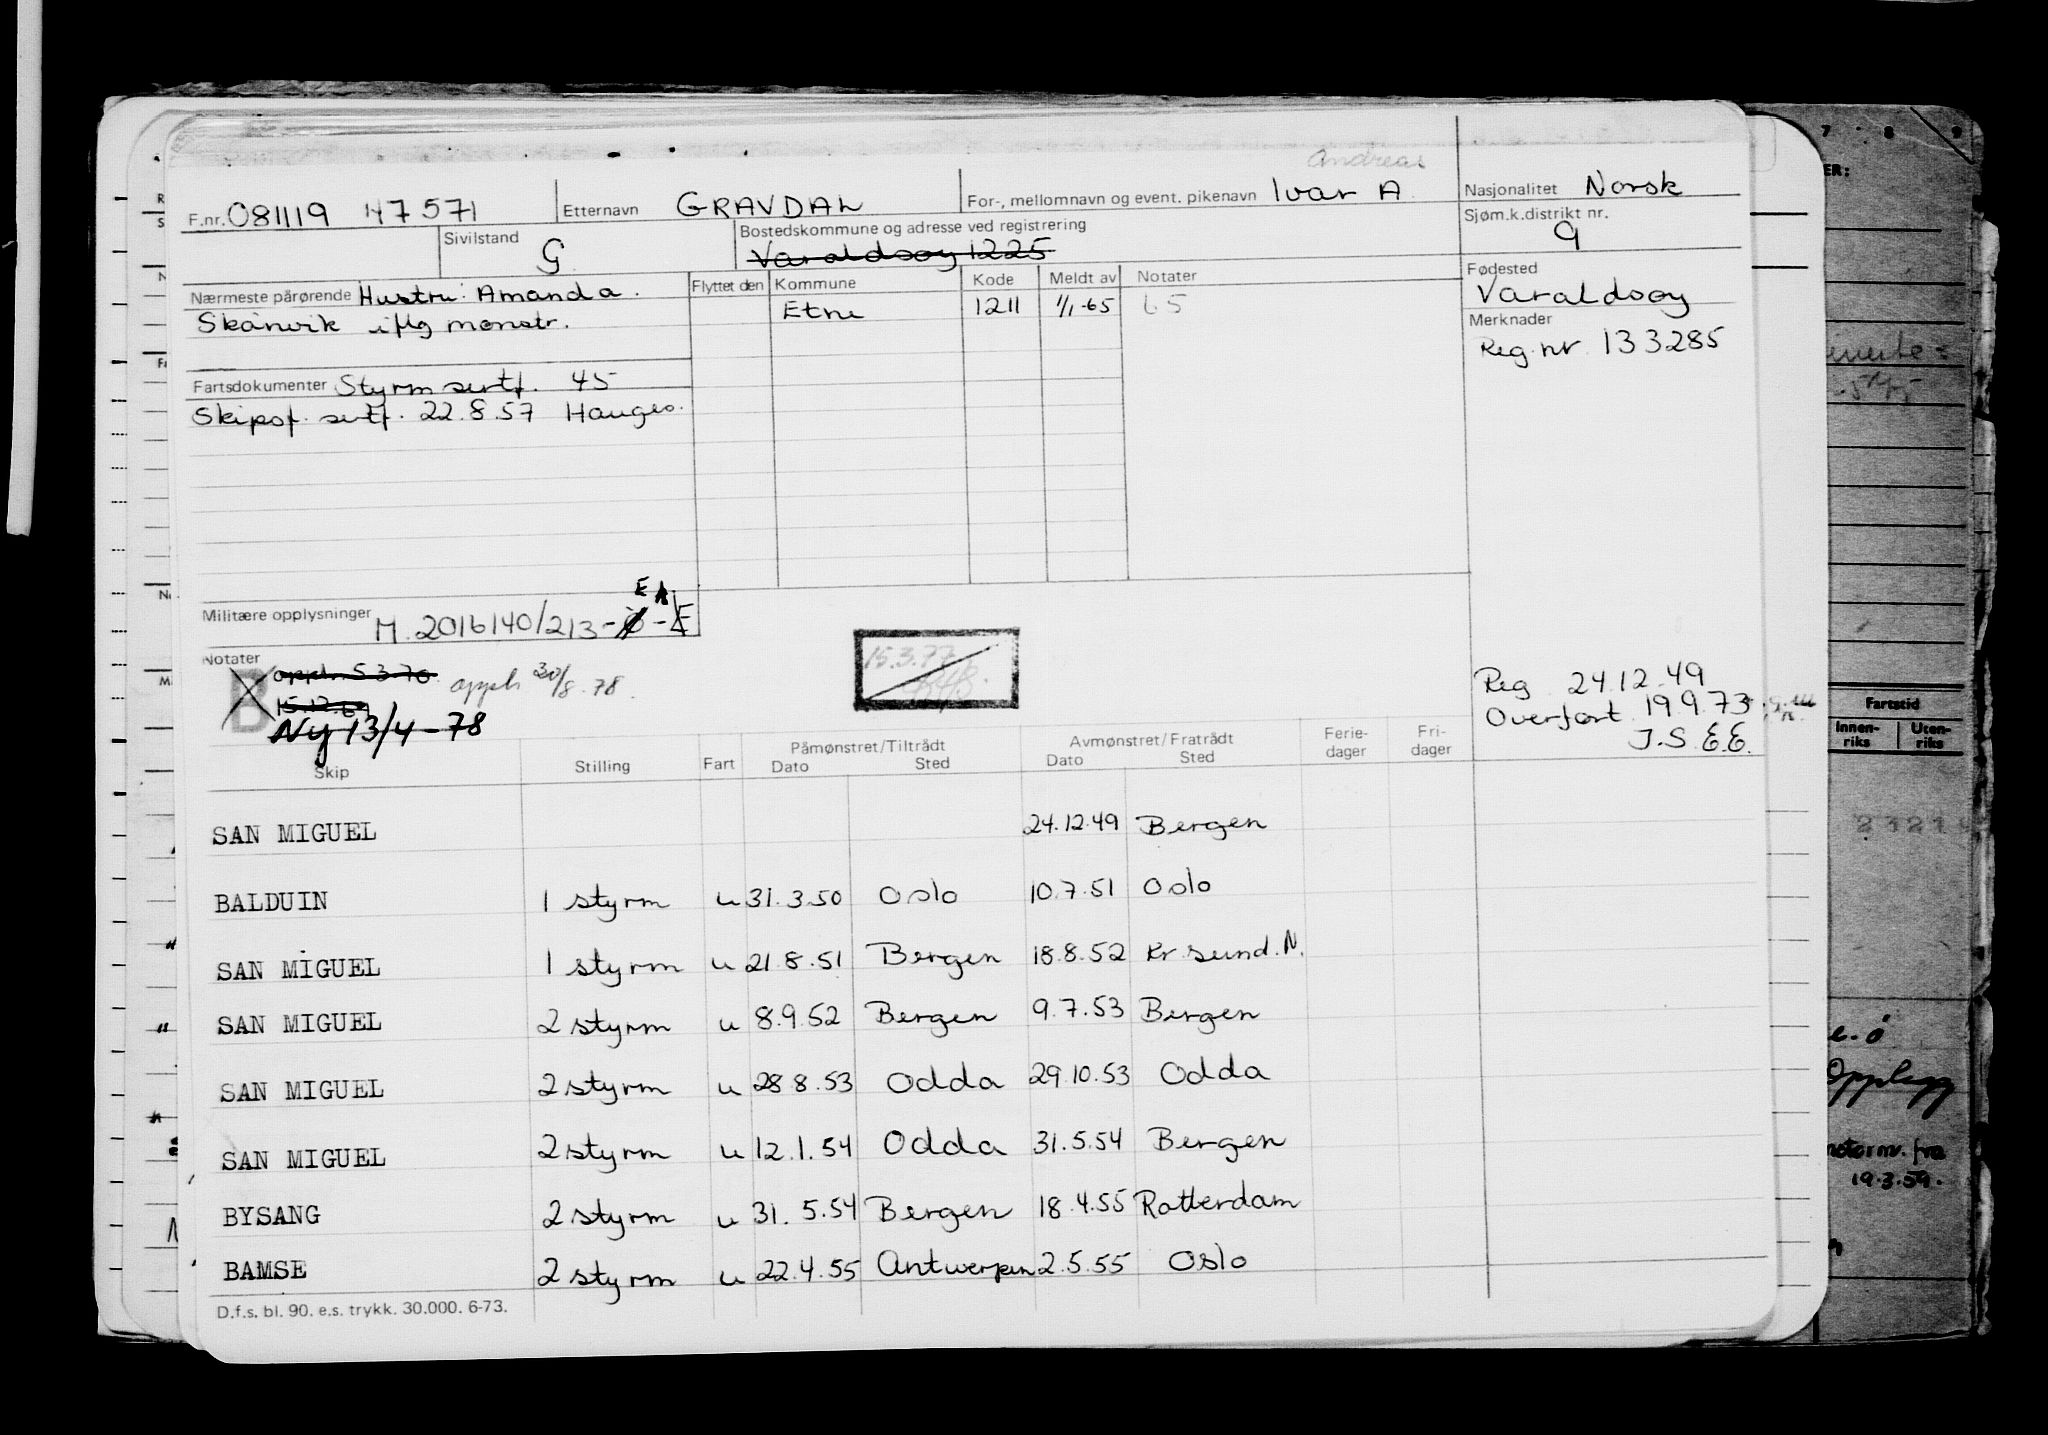 Andreas
F.nr. 081119 47571 Etternavn GRAVDAL For-, mellomnavn og event. pikenavn Ivar A. Nasjonalitet Norsk
Sivilstand G Bostedskommune og adresse ved registrering Varaldsøy 1225 Sjøm.k.distrikt nr. 9
Nærmeste pårørende Hustru: Amanda. Flyttet den Kommune Kode Meldt av Notater Fødested
Skånvik iflg mønstr. Etne 1211 1/1-65 65 Varaldsøy
Merknader
Reg. nr. 133285
Fartsdokumenter Styrm sertf. 45
Skipsf. sertf. 22.8.57 Hauges.
E A
Militære opplysninger M. 2016140/213-Ø-E
Notater
B oppl. 5.3.70 oppls 30/8.78. 15.3.77
15.12.69
Ny 13/4-78
Reg 24.12.49
Overført 19.9.73
J.S. E.E.
Påmønstret/Tiltrådt Avmønstret/Fratrådt Ferie- Fri-
Skip Stilling Fart Dato Sted Dato Sted dager dager
SAN MIGUEL 24.12.49 Bergen
BALDUIN 1 styrm u 31.3.50 Oslo 10.7.51 Oslo
SAN MIGUEL 1 styrm u 21.8.51 Bergen 18.8.52 Kr sund. N.
SAN MIGUEL 2 styrm u 8.9.52 Bergen 9.7.53 Bergen
SAN MIGUEL 2 styrm u 28 8.53 Odda 29.10.53 Odda
SAN MIGUEL 2 styrm u 12.1.54 Odda 31.5.54 Bergen
BYSANG 2 styrm u 31. 5.54 Bergen 18.4.55 Rotterdam
BAMSE 2 styrm u 22.4.55 Antwerpen 2.5.55 Oslo
D.f.s. bl. 90. e.s. trykk. 30.000. 6-73.
7 8 9
ER:
Fartstid
Innen- Uten-
riks riks
Opplegg
fra
19.3.59.